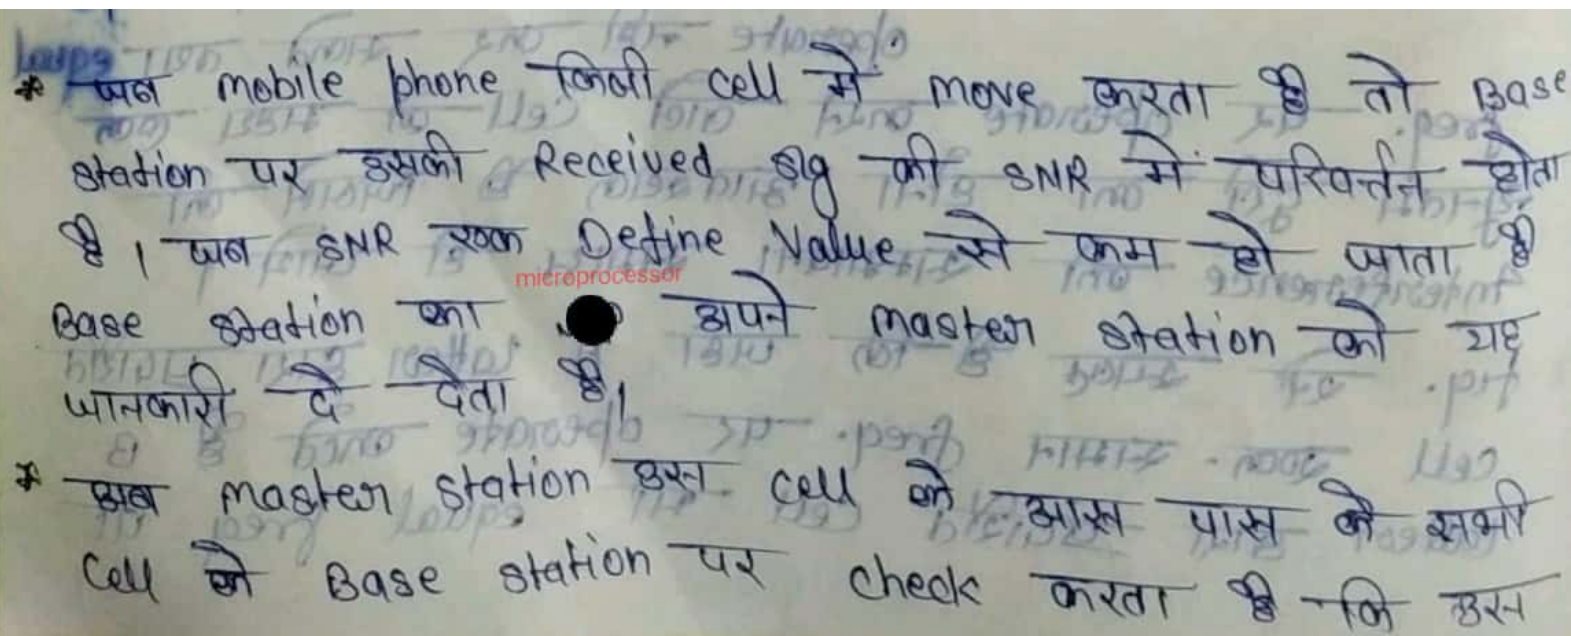 * जब mobile phone किसी cell में move करता है तो Base
station पर उसकी Received sig की SNR में परिवर्त्तन होता
है। जब SNR एक Define Value से कम हो जाता है
microprocessor
Base station का अपने master station को यह
जानकारी दे देता है।
* अब master station उस cell के आस पास के सभी
Cell के Base station पर check करता है कि उस